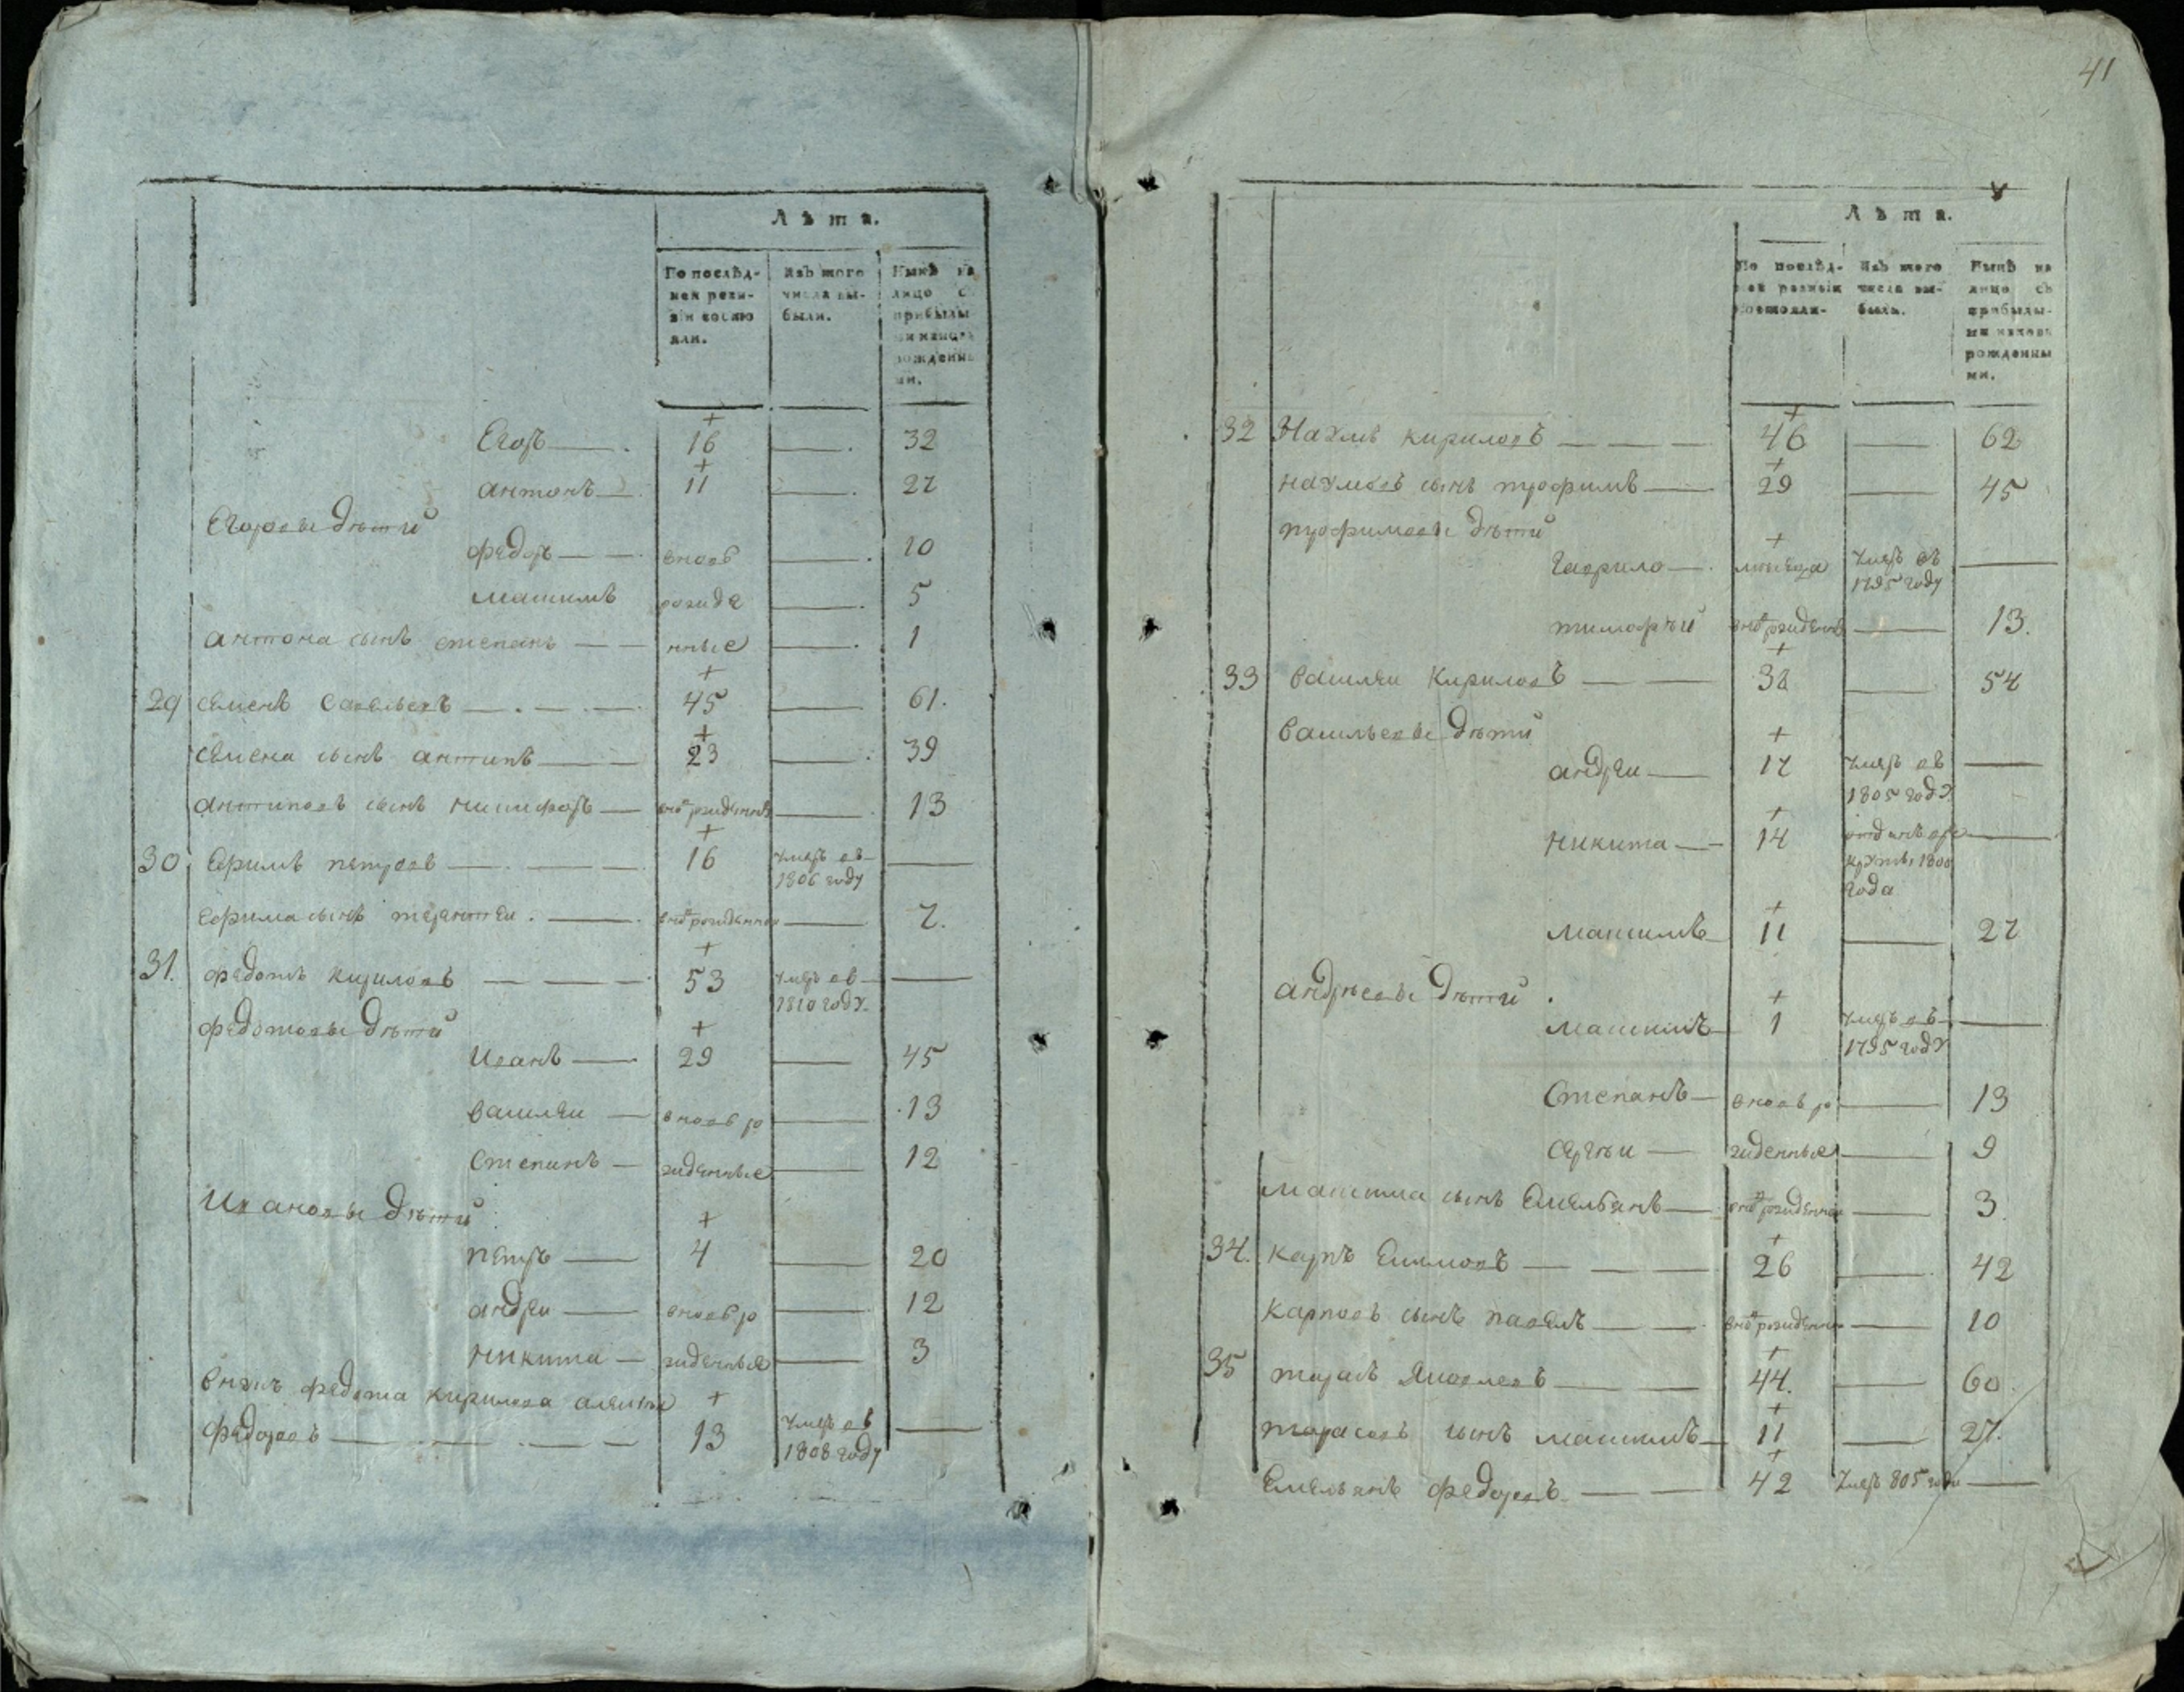 Лѣта.
По послѣд- Изъ того Нынѣ на
ней реви- числа вы- лицо съ
зіи состо были. прибылы
яли. ми и вновь
рожденны
ми.
Егоръ 16 32
антонъ 11 27
Егоровы дѣти
федоръ вновь 10
максимъ рожде 5
антона сынъ степанъ нные 1
29 семенъ савельевъ 45 61.
семена сынъ антипъ 23 39
антиповъ сынъ никифоръ внов рожденнъ 13
30 Ефимъ петровъ 16 умеръ въ
1806 году
Ефима сынъ терентеи. внов рожденнои 7.
31. федотъ кириловъ 53 умеръ въ
1810 году.
федотовы дѣти
Иванъ 29 45
василеи вновь ро 13
Степанъ жденные 12
Ивановы дѣти
петръ 4 20
андреи вновь ро 12
никита жденные 3
внукъ федота кирилова алексеи
федоровъ 13 умеръ въ
1808 году
41
Лѣта.
По послѣд- Изъ того Нынѣ на
ней ревизіи числа вы- лицо съ
состояли- были. прибылы-
ми и вновь
рожденны
ми.
32 Наумъ кириловъ 46 62
наумовъ сынъ трофимъ 29 45
трофимовы дѣти
Гаврило умеръ въ
1795 году
тимофѣй внов рожденнъ 13.
33 василеи Кириловъ 38 54
васильевы дѣти
андреи 17 умеръ въ
1805 году
никита 14 отданъ в ре
круты 1800
года
максимъ 11 27
андрѣевы дѣти.
максимъ 1 умеръ въ
1795 году
Степанъ вновь ро 13
сергѣи жденные 9
максима сынъ Емельянъ внов рожденнои 3.
34. карпъ Екимовъ 26 42
карповъ сынъ павелъ внов рожденнои 10
35 тарасъ Яковлевъ 44. 60.
тарасовъ сынъ максимъ 11 27.
Емельянъ федоровъ 42 умеръ 805 году